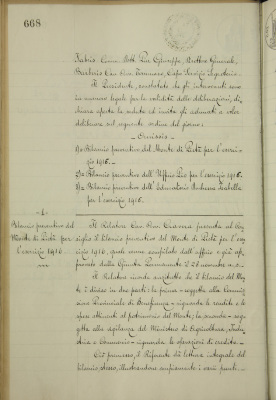 668
Il Presidente, constatato che gli intervenuti sono
in numero legale per la validità delle deliberazioni, di-
chiara aperta la seduta ed invita gli adunati a voler
deliberare sul seguente ordine del giorno:
Omissis
Bilancio preventivo del Monte di Pietà per l'eserci-
zio 1916.
Bilancio preventivo dell'Ufficio Pio per l'esercizio 1916.
Bilancio preventivo dell'Educatorio
per l'esercizio 1916.
Bilancio preventivo del
Monte di Pietà per
l'esercizio 1916
Il Relatore Cav. presenta al
il bilancio preventivo del Monte di Pietà per l'eser-
cizio 1916, quale venne compilato dall'ufficio e già ap-
provato dalla Giunta Permanente il 26
Il Relatore rende anzitutto che il bilancio del Mon-
te è diviso in due parti: la prima - soggetta alla Commis-
sione Provinciale di Beneficenza - riguarda le rendite e le
spese attinenti al patrimonio del Monte; la seconda - sog-
getta alla vigilanza del Ministero di Agricoltura, Indu-
stria e Commercio - riguarda le operazioni di credito.
Ciò premesso, il Riferente dà lettura integrale del
bilancio stesso, illustrandone ampiamente i vari punti.